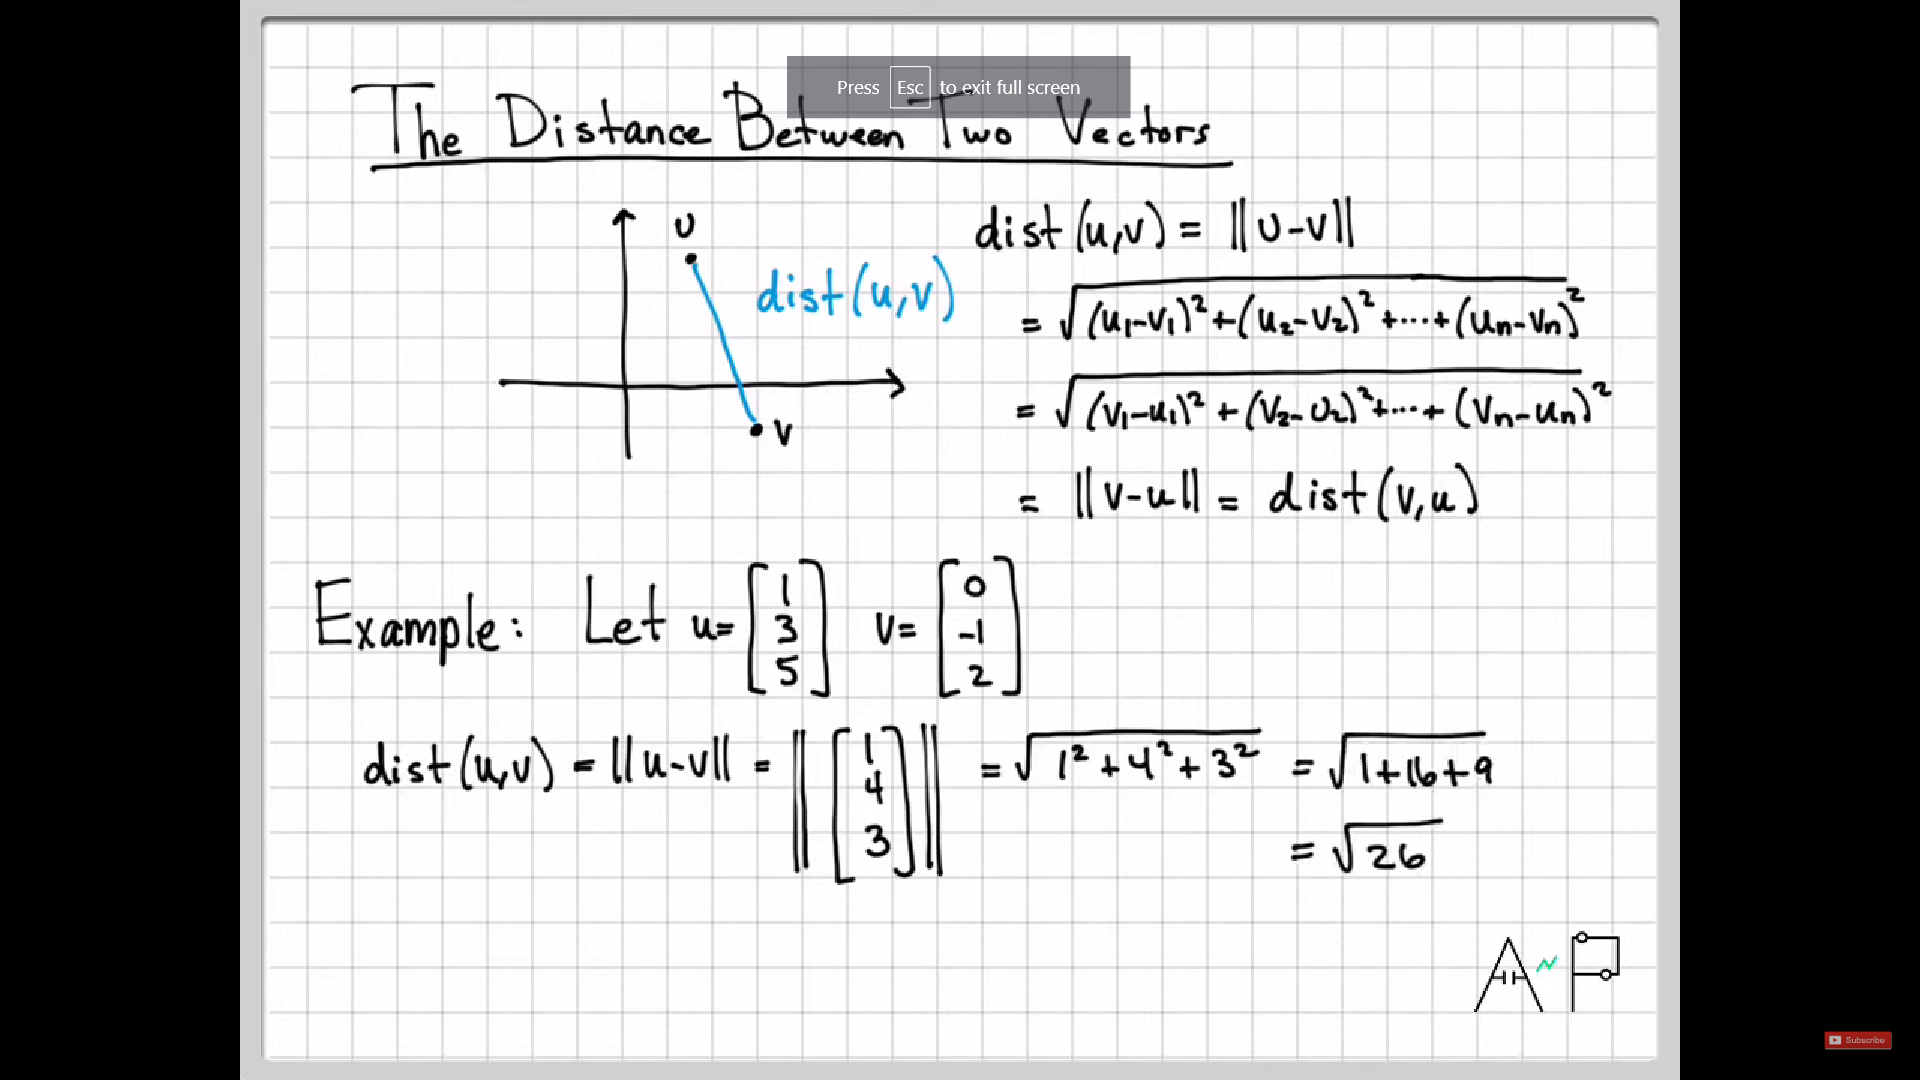 Press Esc to exit full screen
The Distance Between Two Vectors
u
dist(u,v)
v
dist(u,v) = ||u-v||
= √(u₁-v₁)²+(u₂-v₂)²+....+(uₙ-vₙ)²
= √(v₁-u₁)²+(v₂-u₂)²+....+(vₙ-uₙ)²
= ||v-u|| = dist(v,u)
Example: Let u= [1 3 5] v= [0 -1 2]
dist(u,v) = ||u-v|| = ||[1 4 3]|| = √1²+4²+3² = √1+16+9
= √26
AP
Subscribe